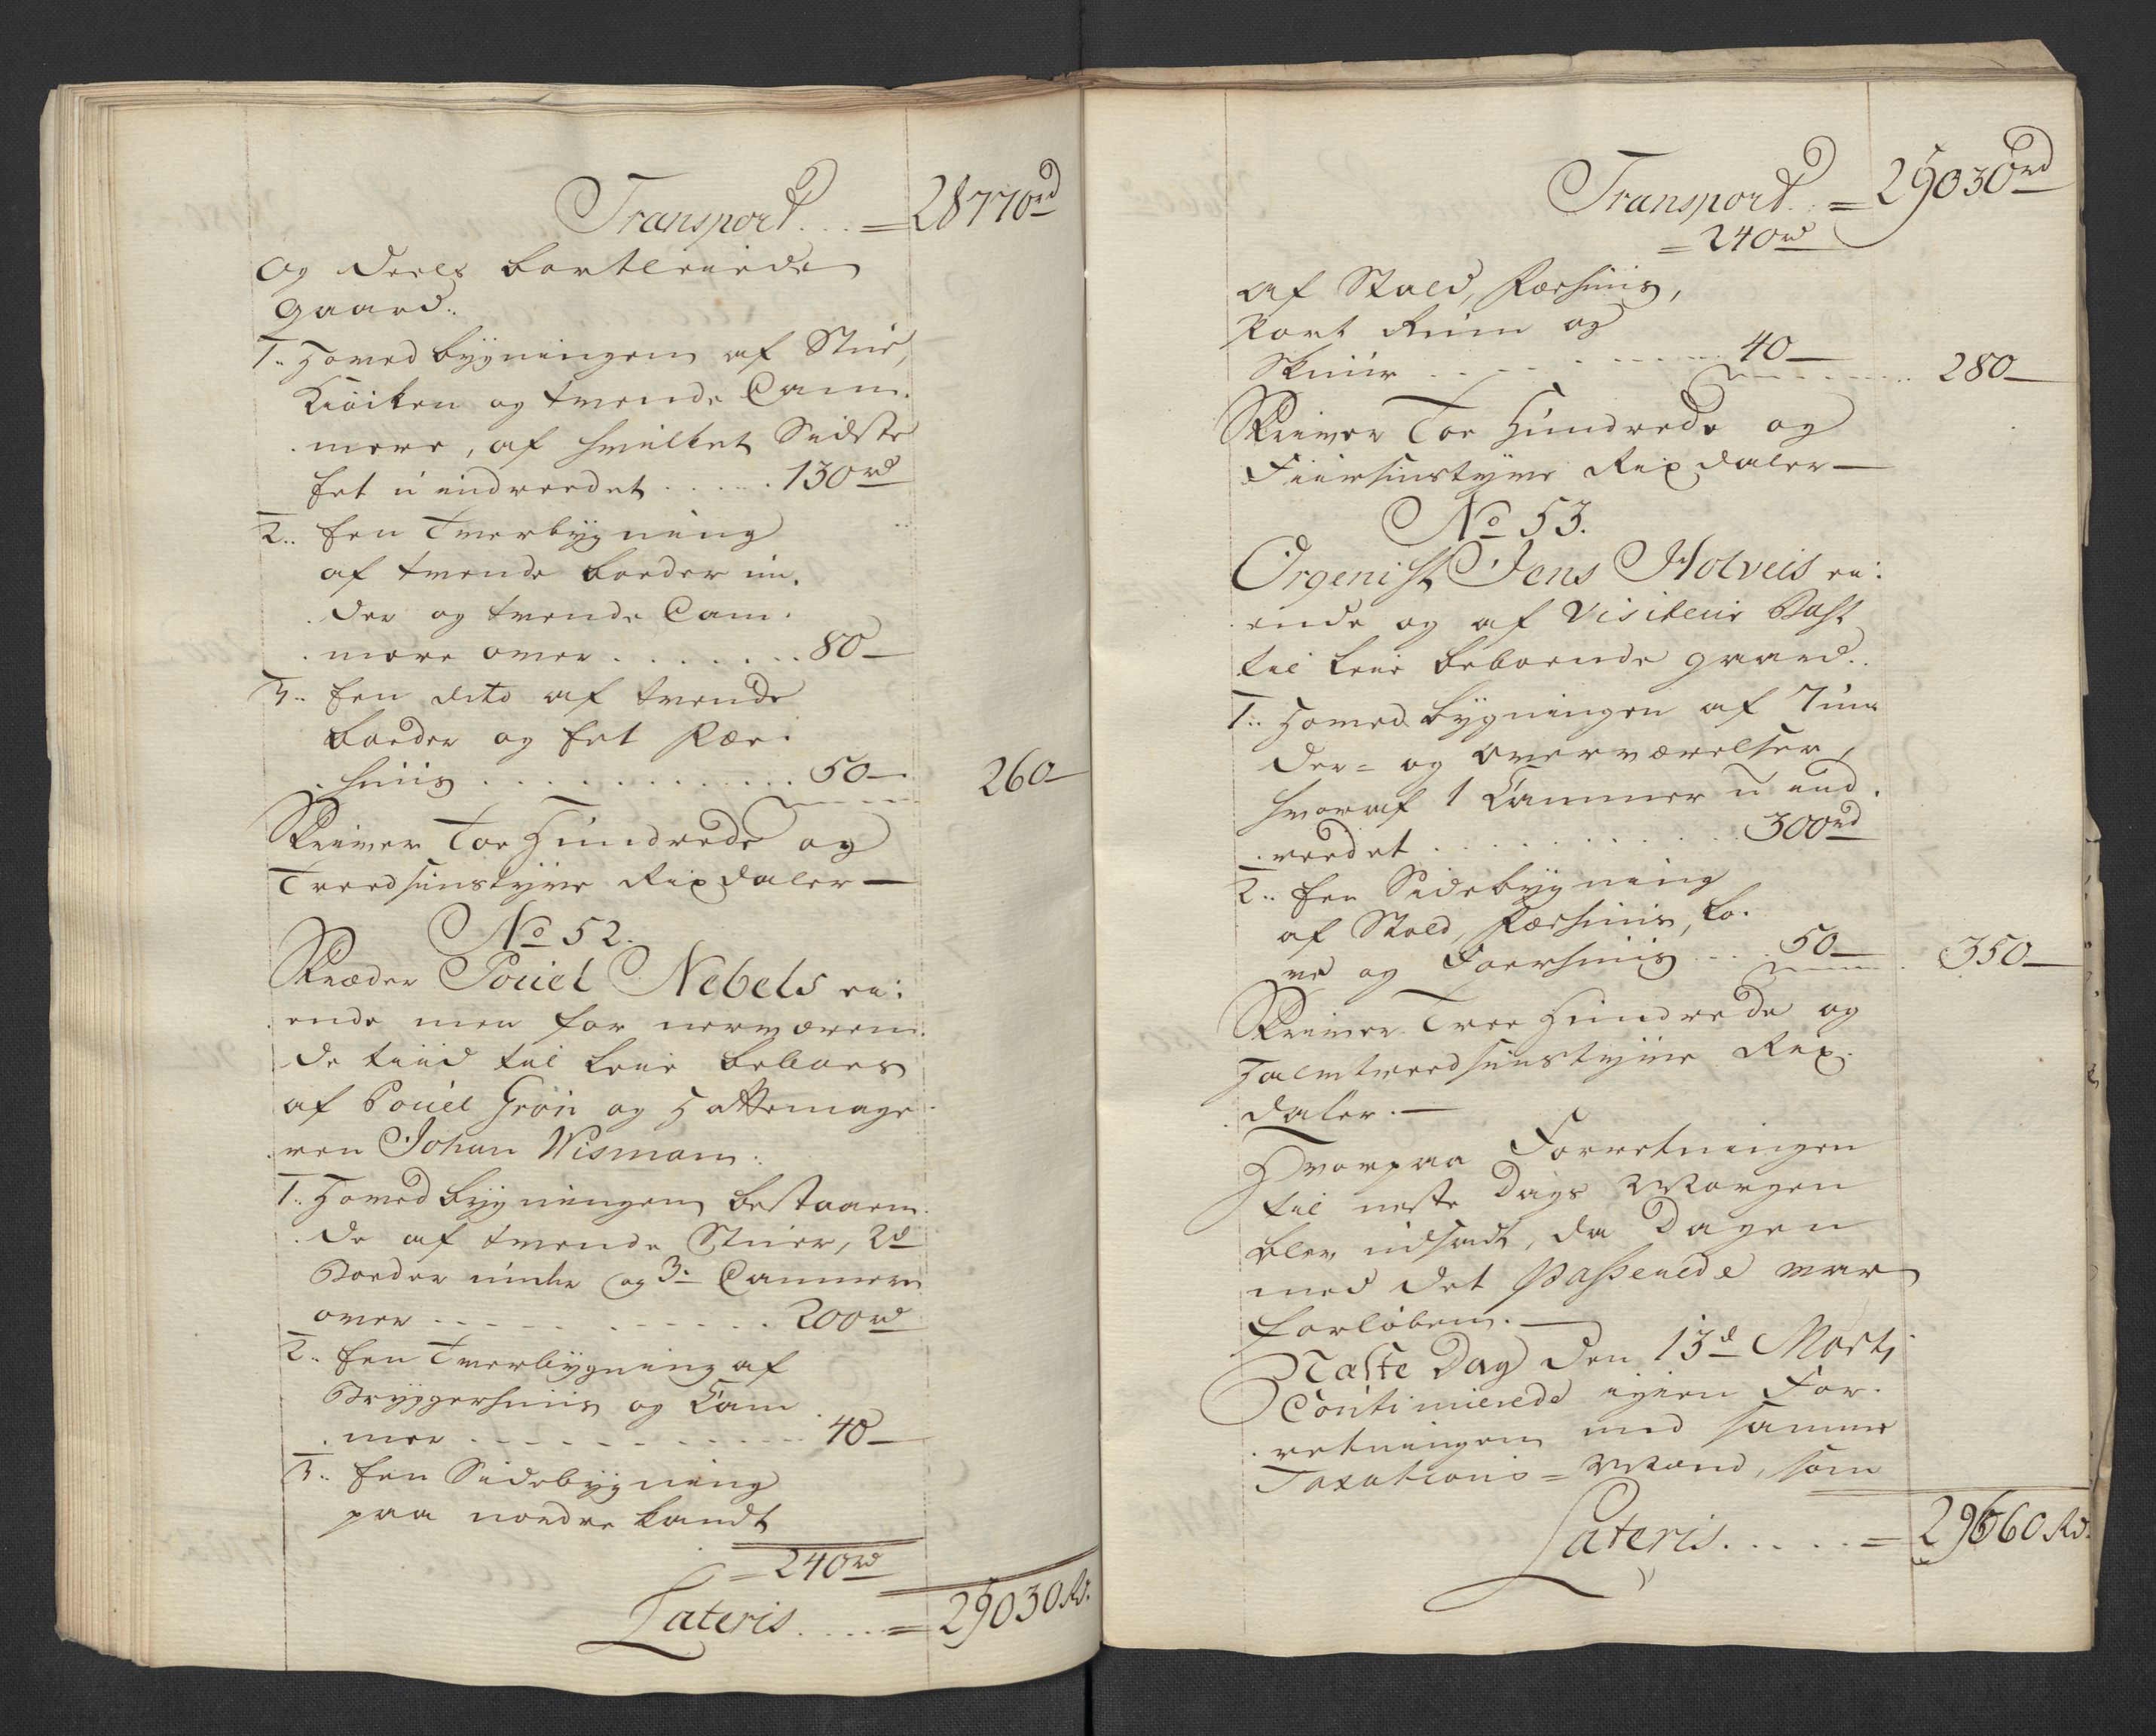 Transport . . . = 28770rd
og deels bortleiede
gaard..
1.. Hovedbygningen af Stue,
Kiöcken og tvende Cam-
mere, af hvilket Sidste
Eet u-indreedet . . . . . 130rd
2.. Een Tverbygning
af tvende boeder un-
der og tvende Cam-
mere over . . . . . . . . 80 —
3.. Een dito af tvende
boeder og Eet Pac-
huus . . . . . . . . . . . 50 — 260 —
Skriver Toe Hundrede og
Treedsinstyve Rixdaler —
No 52.
Skræder Pouel Nebels ei-
ende men for nerværen-
de tiid til Leie beboes
af Pouel Grön og Hattemage-
ren Johan Wisman.
1.. Hovedbygningen bestaaen-
de af tvende Stuer, 2de
Boeder under og 3de Cammere
over . . . . . . . . . . 200rd
2.. Een Tverbygning af
Bryggerhuus og Cam-
mer . . . . . . . . . . . 40 —
3.. Een Sidebygning
paa nordre kandt
= 240rd
Lateris . . . . . = 29030 Rd.
Transport . . = 29030rd
= 240rd
af Stald, Pachuus,
Port Rum og
Skuur . . . . . . . . . 40 — 280 —
Skriver Toe Hundrede og
Fiirsinstyve Rixdaler —
No 53.
Orgenist Jens Holveis ei-
ende og af Visiteur Bast
til Leie beboende gaard..
1.. Hovedbygningen af 7 un-
der- og overværelser,
hvoraf 1 Kammer u-ind-
reedet . . . . . . . . . . . 300rd
2.. Een Sidebygning
af Stald, Pachuus, Lo-
ve og Foerhuus . . . 50 — 350 —
Skriver Tree Hundrede og
Halvtreedsinstyve Rix-
daler. —
Hvorpaa Forretningen
til neste Dags Morgen
blev udsadt, da Dagen
med det Passerede var
forlöben. —
Næste Dag den 13de Marti
Continuerede igien For-
retningen med samme
Taxations-Mænd, som
Lateris . . . . . = 29660 Rd.